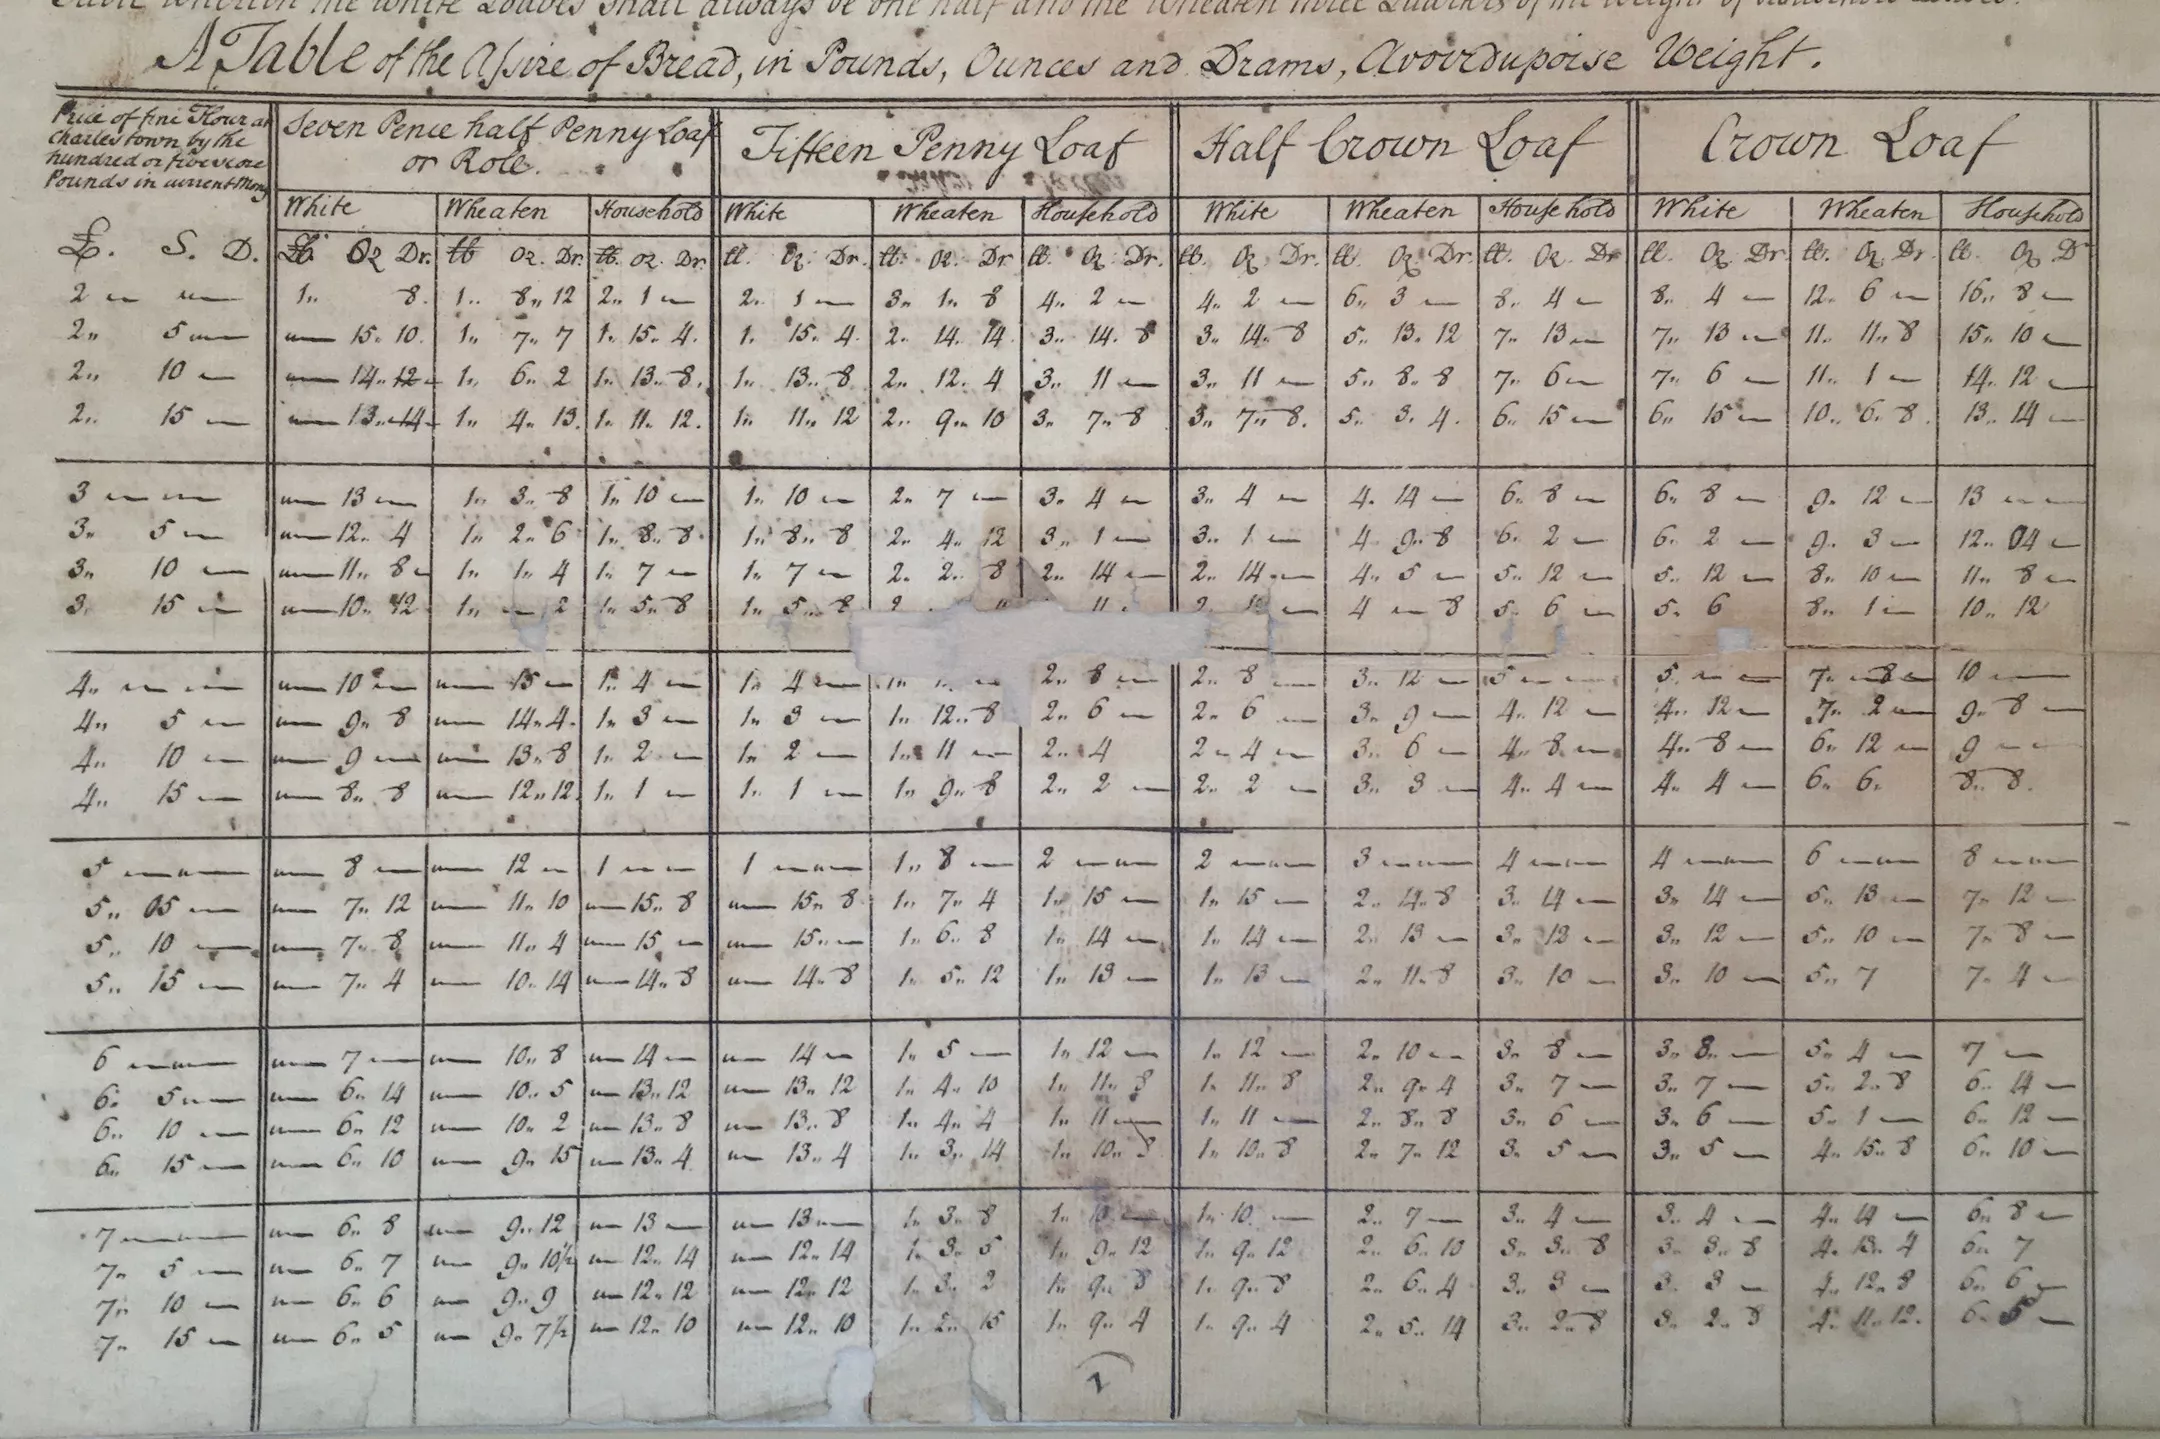 the white Loaves shall always be one half and the Wheaten three Quarters of the Weight of Household Loaves.
A Table of the Assize of Bread, in Pounds, Ounces and Drams, Avoirdupoise Weight.
Price of fine Flour at Charlestown by the hundred or five score Pounds in current Mony Seven Pence half Penny Loaf or Role. Fifteen Penny Loaf Half Crown Loaf Crown Loaf
White Wheaten Household White Wheaten Household White Wheaten Household White Wheaten Household
£. S. D. ℔ Oz Dr. ℔ Oz. Dr. ℔. oz. Dr. ℔. Oz. Dr. ℔. oz. Dr ℔. Oz. Dr. ℔. Oz. Dr. ℔. Oz. Dr. ℔. Oz. Dr ℔. Oz. Dr ℔. Oz. Dr. ℔. Oz D
2 — — 1" 8. 1" 8" 12 2" 1 — 2" 1 — 3" 1" 8 4" 2 — 4" 2 — 6" 3 — 8" 4 — 8" 4 — 12" 6 — 16" 8 —
2" 5 — — 15" 10. 1" 7" 7 1" 15" 4. 1" 15" 4. 2" 14" 14 3" 14" 8 3" 14" 8 5" 13" 12 7" 13 — 7" 13 — 11" 11" 8 15" 10 —
2" 10 — — 14" 12 1" 6" 2 1" 13" 8. 1" 13" 8 2" 12" 4 3" 11 — 3" 11 — 5" 8" 8 7" 6 — 7" 6 — 11" 1 — 14" 12 —
2" 15 — — 13" 14 1" 4" 13. 1" 11" 12. 1" 11" 12 2" 9" 10 3" 7" 8 3" 7" 8. 5" 3" 4. 6" 15 — 6" 15 — 10" 6" 8. 13" 14 —
3 — — — 13 — 1" 3" 8 1" 10 — 1" 10 — 2" 7 — 3" 4 — 3" 4 — 4" 14 — 6" 8 — 6" 8 — 9" 12 — 13 — —
3" 5 — — 12" 4 1" 2" 6 1" 8" 8. 1" 8" 8 2" 4" 12 3" 1 — 3" 1 — 4 9" 8 6" 2 — 6" 2 — 9" 3 — 12" 04 —
3" 10 — — 11" 8 — 1" 1" 4 1" 7 — 1" 7 — 2" 2" 8 2" 14 — 2" 14 — 4" 5 — 5" 12 — 5" 12 — 8" 10 — 11" 8 —
3" 15 — — 10" 12 1" — 2 1" 5" 8 1" 5" 8 2 11 2 — 4 — 8 5" 6 — 5" 6 8" 1 — 10" 12
4" — — — 10 — — 15 — 1" 4 — 1" 4 — 2" 8 — 2" 8 — 3" 12 — 5 — — 5 — — 7" 8 — 10 —
4" 5 — — 9" 8 — 14" 4. 1" 3 — 1" 3 — 1" 12" 8 2" 6 — 2" 6 — 3" 9 — 4" 12 — 4" 12 — 7" 2 — 9" 8 —
4" 10 — — 9 — — 13" 8 1" 2 — 1" 2 — 1" 11 — 2" 4 2" 4 — 3" 6 — 4" 8 — 4" 8 — 6" 12 — 9 — —
4" 15 — — 8" 8 — 12" 12. 1" 1 — 1" 1 — 1" 9" 8 2" 2 — 2" 2 — 3" 3 — 4" 4 — 4" 4 — 6" 6. 8" 8.
5 — — — 8 — — 12 — 1 — — 1 — — 1" 8 — 2 — — 2 — — 3 — — 4 — — 4 — — 6 — — 8 — —
5" 05 — — 7" 12 — 11" 10 — 15" 8 — 15" 8 1" 7" 4 1" 15 — 1" 15 — 2" 14" 8 3" 14 — 3" 14 — 5" 13 — 7" 12 —
5" 10 — — 7" 8 — 11" 4 — 15 — — 15" — 1" 6" 8 1" 14 — 1" 14 — 2" 13 — 3" 12 — 3" 12 — 5" 10 — 7" 8 —
5" 15 — — 7" 4 — 10" 14 — 14" 8 — 14" 8 1" 5" 12 1" 13 — 1" 13 — 2" 11" 8 3" 10 — 3" 10 — 5" 7 7" 4 —
6 — — — 7 — — 10" 8 — 14 — — 14 — 1" 5 — 1" 12 — 1" 12 — 2" 10 — 3" 8 — 3" 8" — 5" 4 — 7 —
6" 5 — — 6" 14 — 10" 5 — 13" 12 — 13" 12 1" 4" 10 1" 11" 8 1" 11" 8 2" 9" 4 3" 7 — 3" 7 — 5" 2" 8 6" 14 —
6" 10 — — 6" 12 — 10" 2 — 13" 8 — 13" 8 1" 4" 4 1" 11 — 1" 11 — 2" 8" 8 3" 6 — 3" 6 — 5" 1 — 6" 12 —
6" 15 — — 6" 10 — 9" 15 — 13" 4. — 13" 4 1" 3" 14 1" 10" 8 1" 10" 8 2" 7" 12 3" 5 — 3" 5 — 4" 15" 8 6" 10 —
7 — — — 6" 8 — 9" 12 — 13 — — 13 — 1" 3" 8 1" 10 — 1" 10 — 2" 7 — 3" 4 — 3" 4 — 4" 14 — 6" 8 —
7" 5 — — 6" 7 — 9" 10½ — 12" 14 — 12" 14 1" 3" 5 1" 9" 12 1" 9" 12 2" 6" 10 3" 3" 8 3" 3" 8 4" 13" 4 6" 7
7" 10 — — 6" 6 — 9" 9 — 12" 12 — 12" 12 1" 3" 2 1" 9" 8 1" 9" 8 2" 6" 4 3" 3 — 3" 3 — 4" 12" 8 6" 6 —
7" 15 — — 6" 5 — 9" 7½ — 12" 10 — 12" 10 1" 2" 15 1" 9" 4 1" 9" 4 2" 5" 14 3" 2" 8 3" 2" 8 4" 11" 12. 6" 5 —